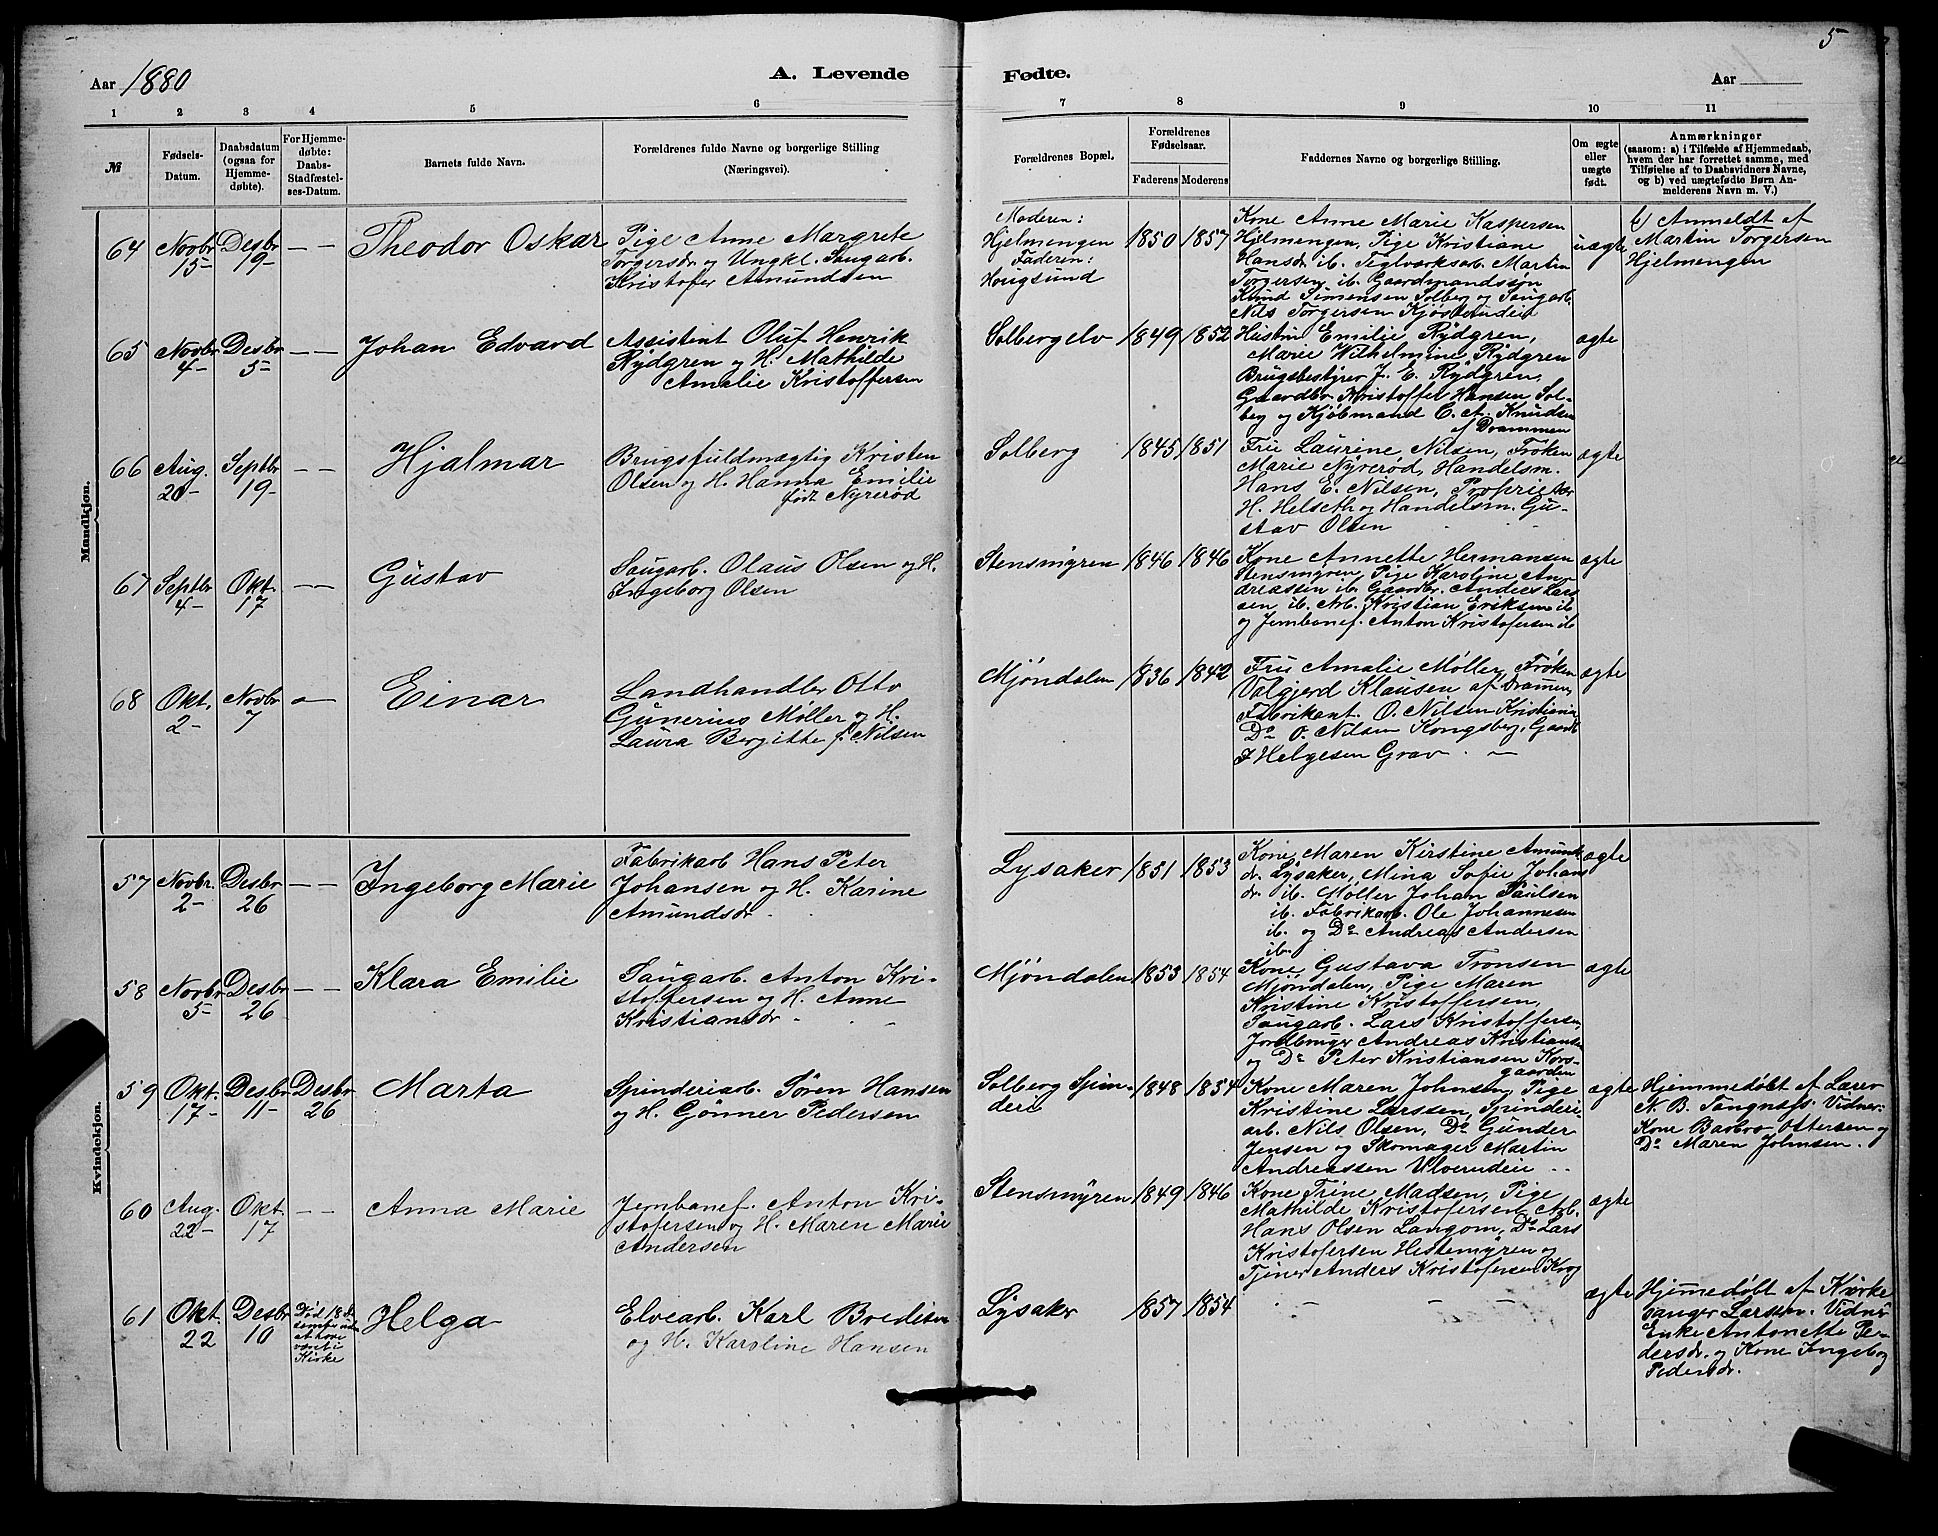 5
Aar 1880
A. Levende
Fødte.
Aar
1 2 3 4 5 6 7 8 9 10 11
№
Fødsels-
Datum.
Daabsdatum
(ogsaa for
Hjemme-
døbte).
For Hjemme-
døbte:
Daabs-
Stadfæstel-
ses-Datum.
Barnets fulde Navn.
Forældrenes fulde Navne og borgerlige Stilling
(Næringsvei).
Forældrenes Bopæl.
Forældrenes
Fødselsaar.
Faderens Moderens
Faddernes Navne og borgerlige Stilling.
Om ægte
eller
uægte
født.
Anmærkninger
(saasom: a) i Tilfælde af Hjemmedaab,
hvem der har forrettet samme, med
Tilføielse af to Daabsvidners Navne,
og b) ved uægtefødte Børn An-
melderens Navn m. V.)
Mandkjøn.
64
Novbr
15
Desbr
19
— —
Theodor Oskar
Pige Anne Margrete
Torgersdr og Ungkl. Saugarb.
Kristofer Amundsen
Moderen:
Hjelmengen
Faderen:
Hougsund
1850 1857
Kone Anne Marie Kaspersen
Hjelmengen, Pige Kristiane
Hansdr ib. Teglværksarb. Martin
Torgersen ib. Gaardmandssøn
Knud Simensen Solberg og Saugarb.
Nils Torgersen Kjøsterudeie
uægte
b) Anmeldt af
Martin Torgersen
Hjelmengen
65
Novbr
4
Desbr
5
— —
Johan Edvard
Assistent Oluf Henrik
Rydgren og H. Mathilde
Amalie Kristoffersen
Solbergelv
1849 1852
Hustru Emilie Rydgren,
Marie Wilhelmine Rydgren
Brugsbestyrer J. E. Rydgren,
Gaardbr Kristoffer Hansen Sol-
berg og Kjøbmand C. A. Knudsen
af Drammen
ægte
66
Aug.
20
Septbr
19
— —
Hjalmar
Brugsfuldmægtig Kristen
Olsen og H. Hanna Emilie
født Nyrerød
Solberg
1845 1851
Fru Laurine Nilsen, Frøken
Marie Nyrerød, Handelsm.
Hans E. Nilsen, Proprietær
H. Helseth og Handelsm. Gu-
stav Olsen
ægte
67
Septbr
4
Okt.
17
— —
Gustav
Saugarb. Olaus Olsen og H.
Ingeborg Olsen
Stensmyren
1846 1846
Kone Annette Hermansen
Stensmyren, Pige Karoline An-
dreassen ib. Gaardbr. Anders Lars-
sen ib. Arb. Kristian Eriksen ib
og Jernbanef. Anton Kristofersen ib
ægte
68
Okt.
2
Novbr
7
—
Einar
Landhandler Otto
Gunerius Møller og H.
Laura Bergitte f. Nilsen
Mjøndalen
1836 1842
Fru Amalie Møller, Frøken
Valgjerd Klausen af Drammen,
Fabrikant O. Nilsen Kristiania
Do O. Nilsen Kongsberg, Gaardb.
F Helgesen Grav
ægte
Kvindekjøn.
57
Novbr.
2
Desbr
26
— —
Ingeborg Marie
Fabrikarb Hans Peter
Johansen og H. Karine
Amundsdr
Lysaker
1851 1853
Kone Maren Kirstine Amunds
dr. Lysaker, Mina Sofie Johans
dr ib. Møller Johan Paulsen
ib. Fabrikarb. Ole Johannesen
ib. og Do Andreas Andersen
ib.
ægte
58
Novbr
5
Desbr
26
— —
Klara Emilie
Saugarb. Anton Kri-
stoffersen og H. Anne
Kristiansdr
Mjøndalen
1853 1854
Kone Gustava Tronsen
Mjøndalen, Pige Maren
Kristine Kristoffersen,
Saugarb. Lars Kristoffersen,
Jordbruger Andreas Kristiansen
og Do Peter Kristiansen Kors-
gaarden
ægte
59
Okt.
17
Desbr
11
Desbr
26
Marta
Spinderiarb. Søren Hansen
og H. Gønner Pedersen
Solberg Spin-
deri
1848 1854
Kone Maren Johnsen, Pige
Kristine Larssen, Spinderi
arb. Nils Olsen, Do Gunder
Jensen og Skomager Martin
Andreassen Ulverudeie
ægte
Hjemmedøbt af Lærer
N. B. Tangnæs. Vidner:
Kone Barbro Ottersen og
Do Maren Johnsen.
60
Aug.
22
Okt.
17
— —
Anna Marie
Jernbanef. Anton Kri-
stofersen og H. Maren Marie
Andersen
Stensmyren
1849 1846
Kone Trine Madsen, Pige
Mathilde Kristofersen, Arb.
Hans Olsen Langom, Do Lars
Kristofersen Hestemyren og
Tjener Anders Kristofersen Krog
ægte
61
Okt.
22
Desbr
10
Død 18 de
uden
at have
været i
Kirke
Helga
Elvearb. Karl Bredesen
og H. Karoline Hansen
Lysaker
1857 1854
— — —
ægte
Hjemmedøbt af Kirke
sanger Larssen. Vidner
Enke Antonette Pe-
dersdr. og Kone Ingeborg
Pedersdr.